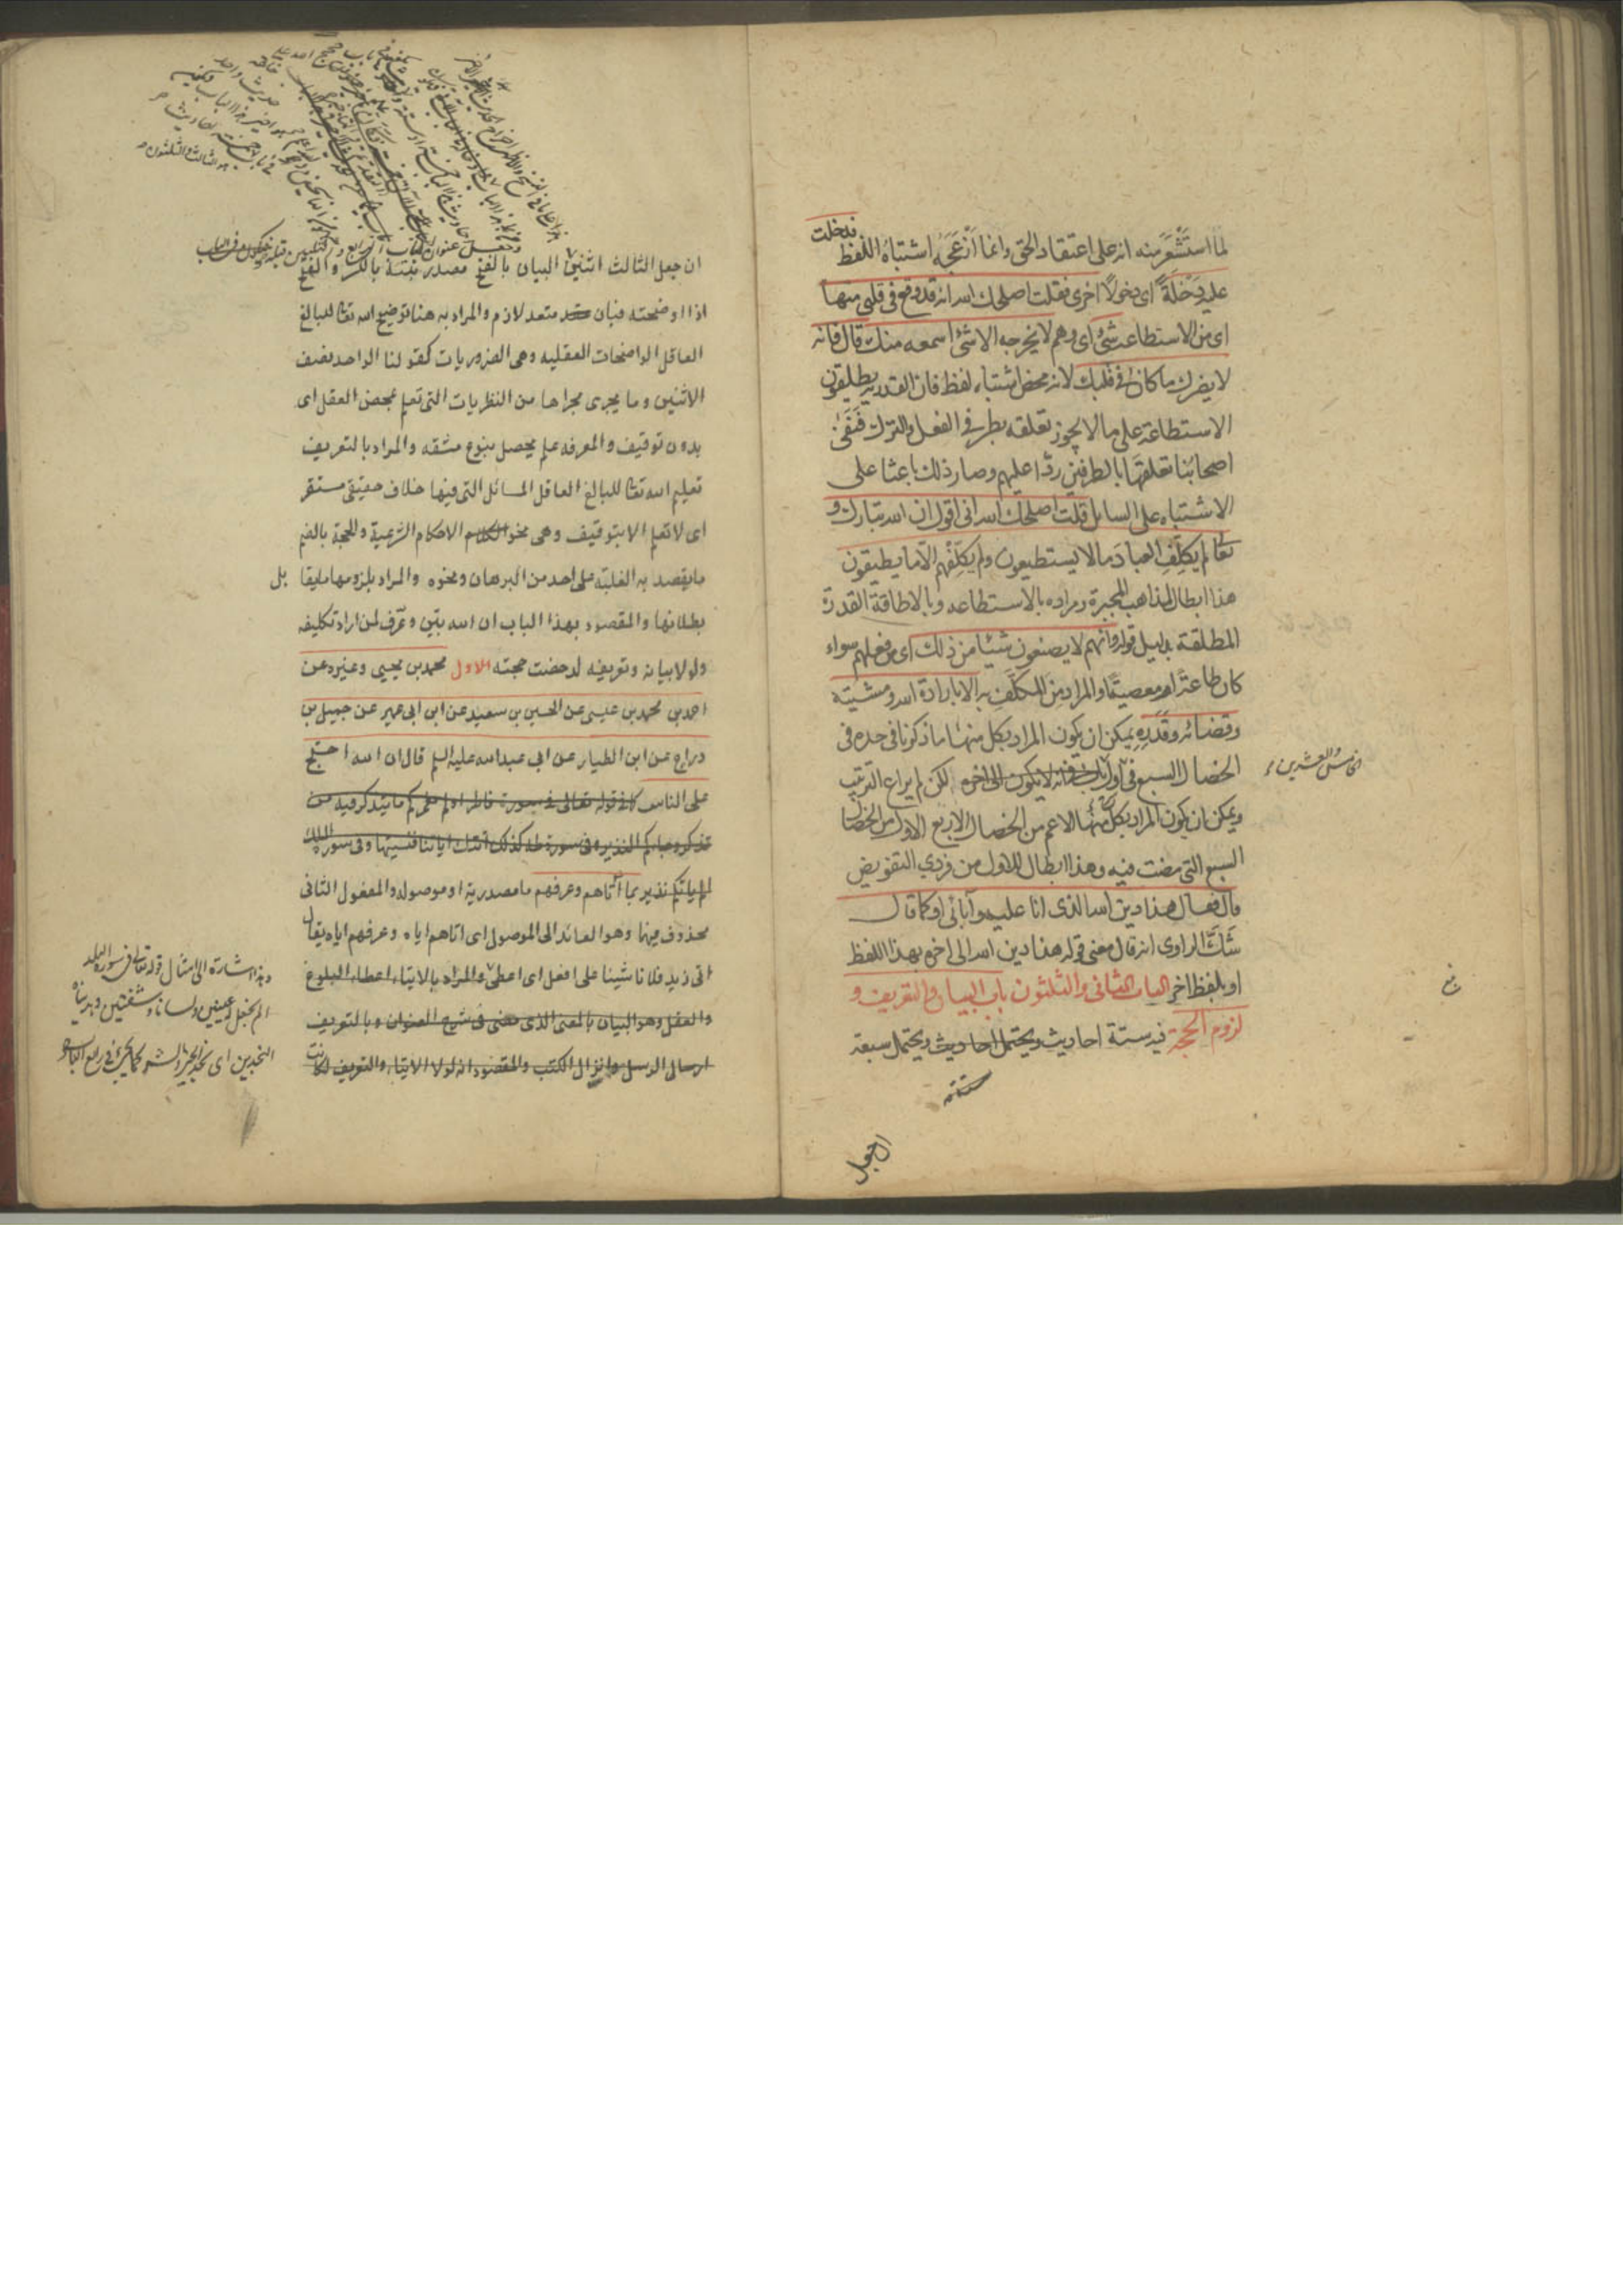 لما استشعر منه انه على اعتقاد الحق وانما ازعجه اشتباه اللفظ فدخلت
عليه دخلة اى دخولا اخرى فقلت اصلحك الله انه قد وقع فى قلبى منها
اى من الاستطاعة شئ اى وهم لا يخرجه الا شئ اسمعه منك قال فانه
لا يضرك ما كان فى قلبك لانه محض اشتباه لفظ فان القدرية يطلقون
الاستطاعة على ما لا يجوز تعلقه بطرفى الفعل والترك فنفى
اصحابنا تعلقها بالطرفين ردا عليهم وصار ذلك باعثا على
الاشتباه على السايل قلت اصلحك الله انى اقول ان الله تبارك و
تعالى لم يكلف العباد ما لا يستطيعون ولم يكلفهم الا ما يطيقون
هذا ابطال لمذاهب المجبرة ومراده بالاستطاعه وبالاطاقة القدرة
المطلقة بدليل قوله وانهم لا يصنعون شيئا من ذلك اى من فعلهم سواء
كان طاعة او معصية والمراد من المكلف به الا بارادة الله ومشيته
وقضائه وقدره يمكن ان يكون المراد بكل منها ما ذكرنا فى حده فى
الخصال السبع فى اول باب فى انه لا يكون الى اخره لكن لم يراع الترتيب
الخامس والعشرين
ويمكن ان يكون المراد بكل منها الاعم من الخصال الاربع الاول من الخصال
السبع التى مضت فيه وهذا ابطال للاول من فردي التفويض
قال فقال هذا دين الله الذى انا عليه وآبائى او كما قال
شك الراوى انه قال معنى قوله هذا دين الله الى اخره بهذا اللفظ
او بلفظ اخر الباب الثانى والثلثون باب البيان والتعريف و
لزوم الحجة فيه ستة احاديث ويحتمل احاديث ويحتمل سبعة
ان جعل
ان جعل الثالث اثنين البيان بالفتح مصدر بنته بالكسر والفتح
اذا اوضحته فبان متعد لازم والمراد به هنا توضيح الله تعالى للبالغ
العاقل الواضحات العقليه وهى الضروريات كقولنا الواحد نصف
الاثنين وما يجرى مجراها من النظريات التى تعلم بمحض العقل اى
بدون توقيف والمعرفه علم يحصل بنوع مشقه والمراد بالتعريف
تعليم الله تعالى للبالغ العاقل المسائل التى فيها خلاف حقيقى مستقر
اى لا تعلم الا بتوقيف وهى نحو الاحكام الشرعية والحجة بالضم
ما يقصد به الغلبة على احد من البرهان ونحوه والمراد بلزومها ما يقابل
بطلانها والمقصود بهذا الباب ان الله بين وعرف لمن اراد تكليفه
ولولا بيانه وتعريفه لدحضت حجته الاول محمد بن يحيى وغيره عن
احمد بن محمد بن عيسى عن الحسين بن سعيد عن ابن ابى عمير عن جميل بن
دراج عن ابن الطيار عن ابى عبدالله عليه السلم قال ان الله احتج
على الناس كما فى قوله تعالى فى سورة فاطر اولم نعمركم ما يتذكر فيه من
تذكر وجاءكم النذير وفى سورة طه كذلك اتتك اياتنا فنسيتها وفى سورة الملك
الم ياتكم نذير بما آتاهم وعرفهم ما مصدرية او موصوله والمفعول الثانى
محذوف فيهما وهو العائد الى الموصول اى اتاهم اياه وعرفهم اياه يقال
اتى زيد فلانا شيئا على افعل اى اعطى والمراد بالايتاء اعطاء البلوغ
والعقل وهو البيان بالمعنى الذى مضى فى شرح العنوان وبالتعريف
ارسال الرسل وانزال الكتب والمقصود انه لولا الايتاء والتعريف لكانت
وهذا اشارة الى امثال قوله تعالى فى سورة البلد
الم نجعل له عينين ولسانا وشفتين وهديناه
النجدين اى نجد الخير والشر كما يجئ فى رابع الباب